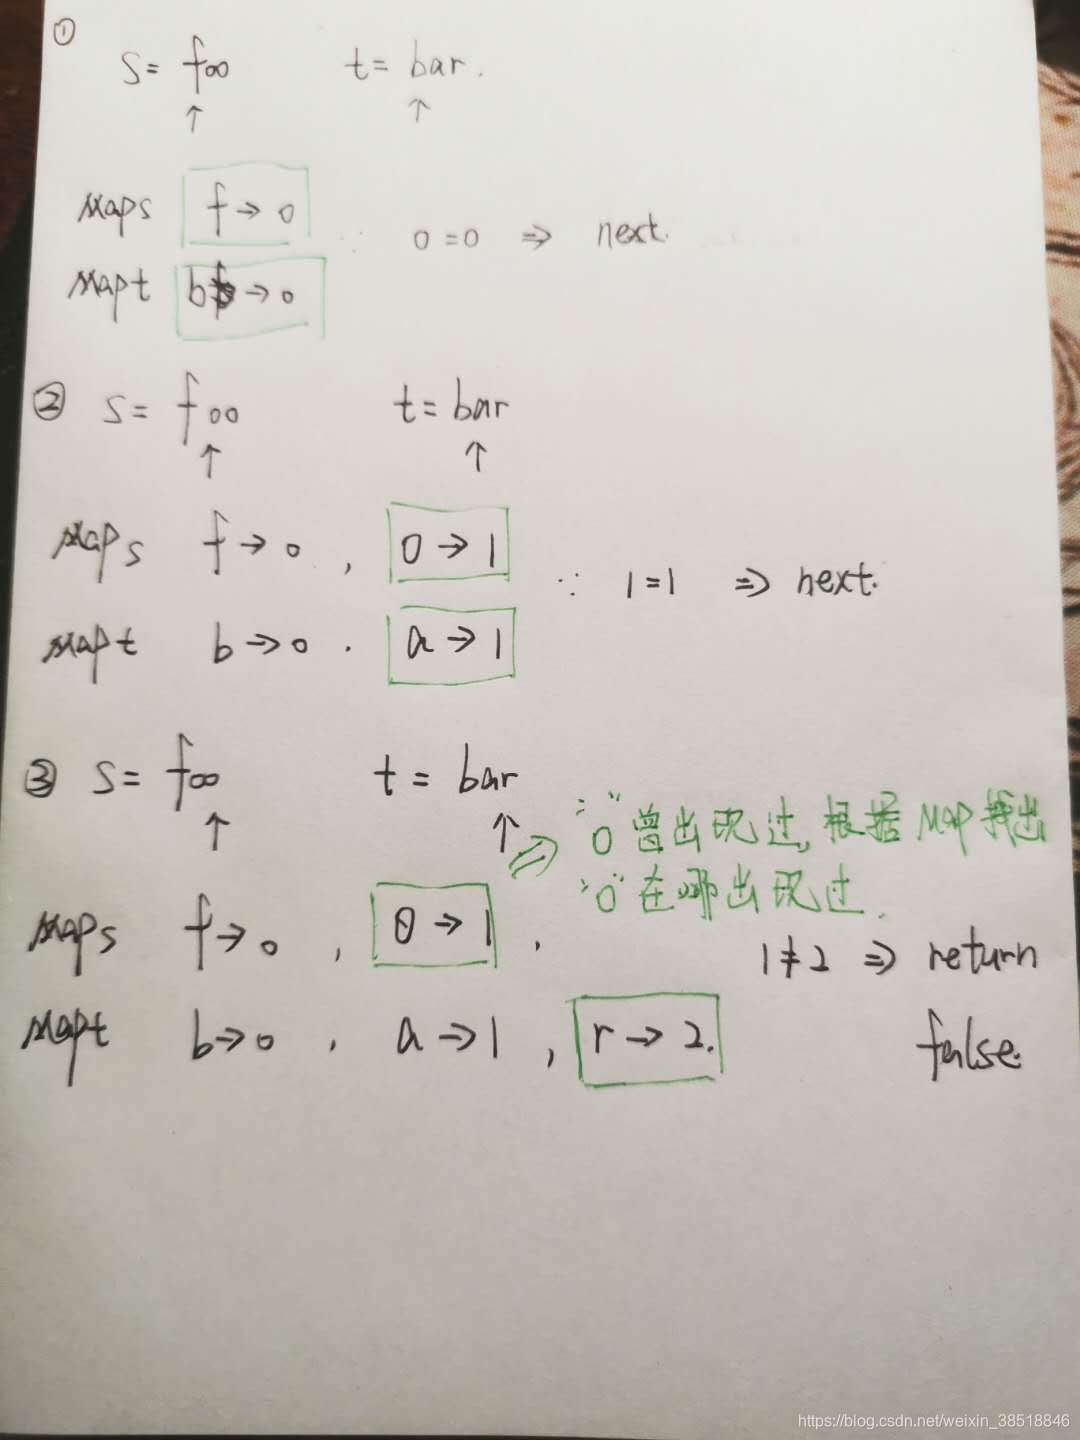 ①
s= foo t= bar.
↑ ↑
Maps f→0
∵ 0=0 ⇒ next.
Mapt b→0
② s= foo t= bar
↑ ↑
Maps f→0 , o→1
∵ 1=1 ⇒ next.
Mapt b→0 . a→1
③ s= foo t= bar
↑ ↑ ⇒ ∵"o"曾出现过,根据Map找出
"o"在哪出现过.
Maps f→0 , o→1 ,
1≠2 ⇒ return
Mapt b→0 , a→1 , r→2.
false.
https://blog.csdn.net/weixin_38518846